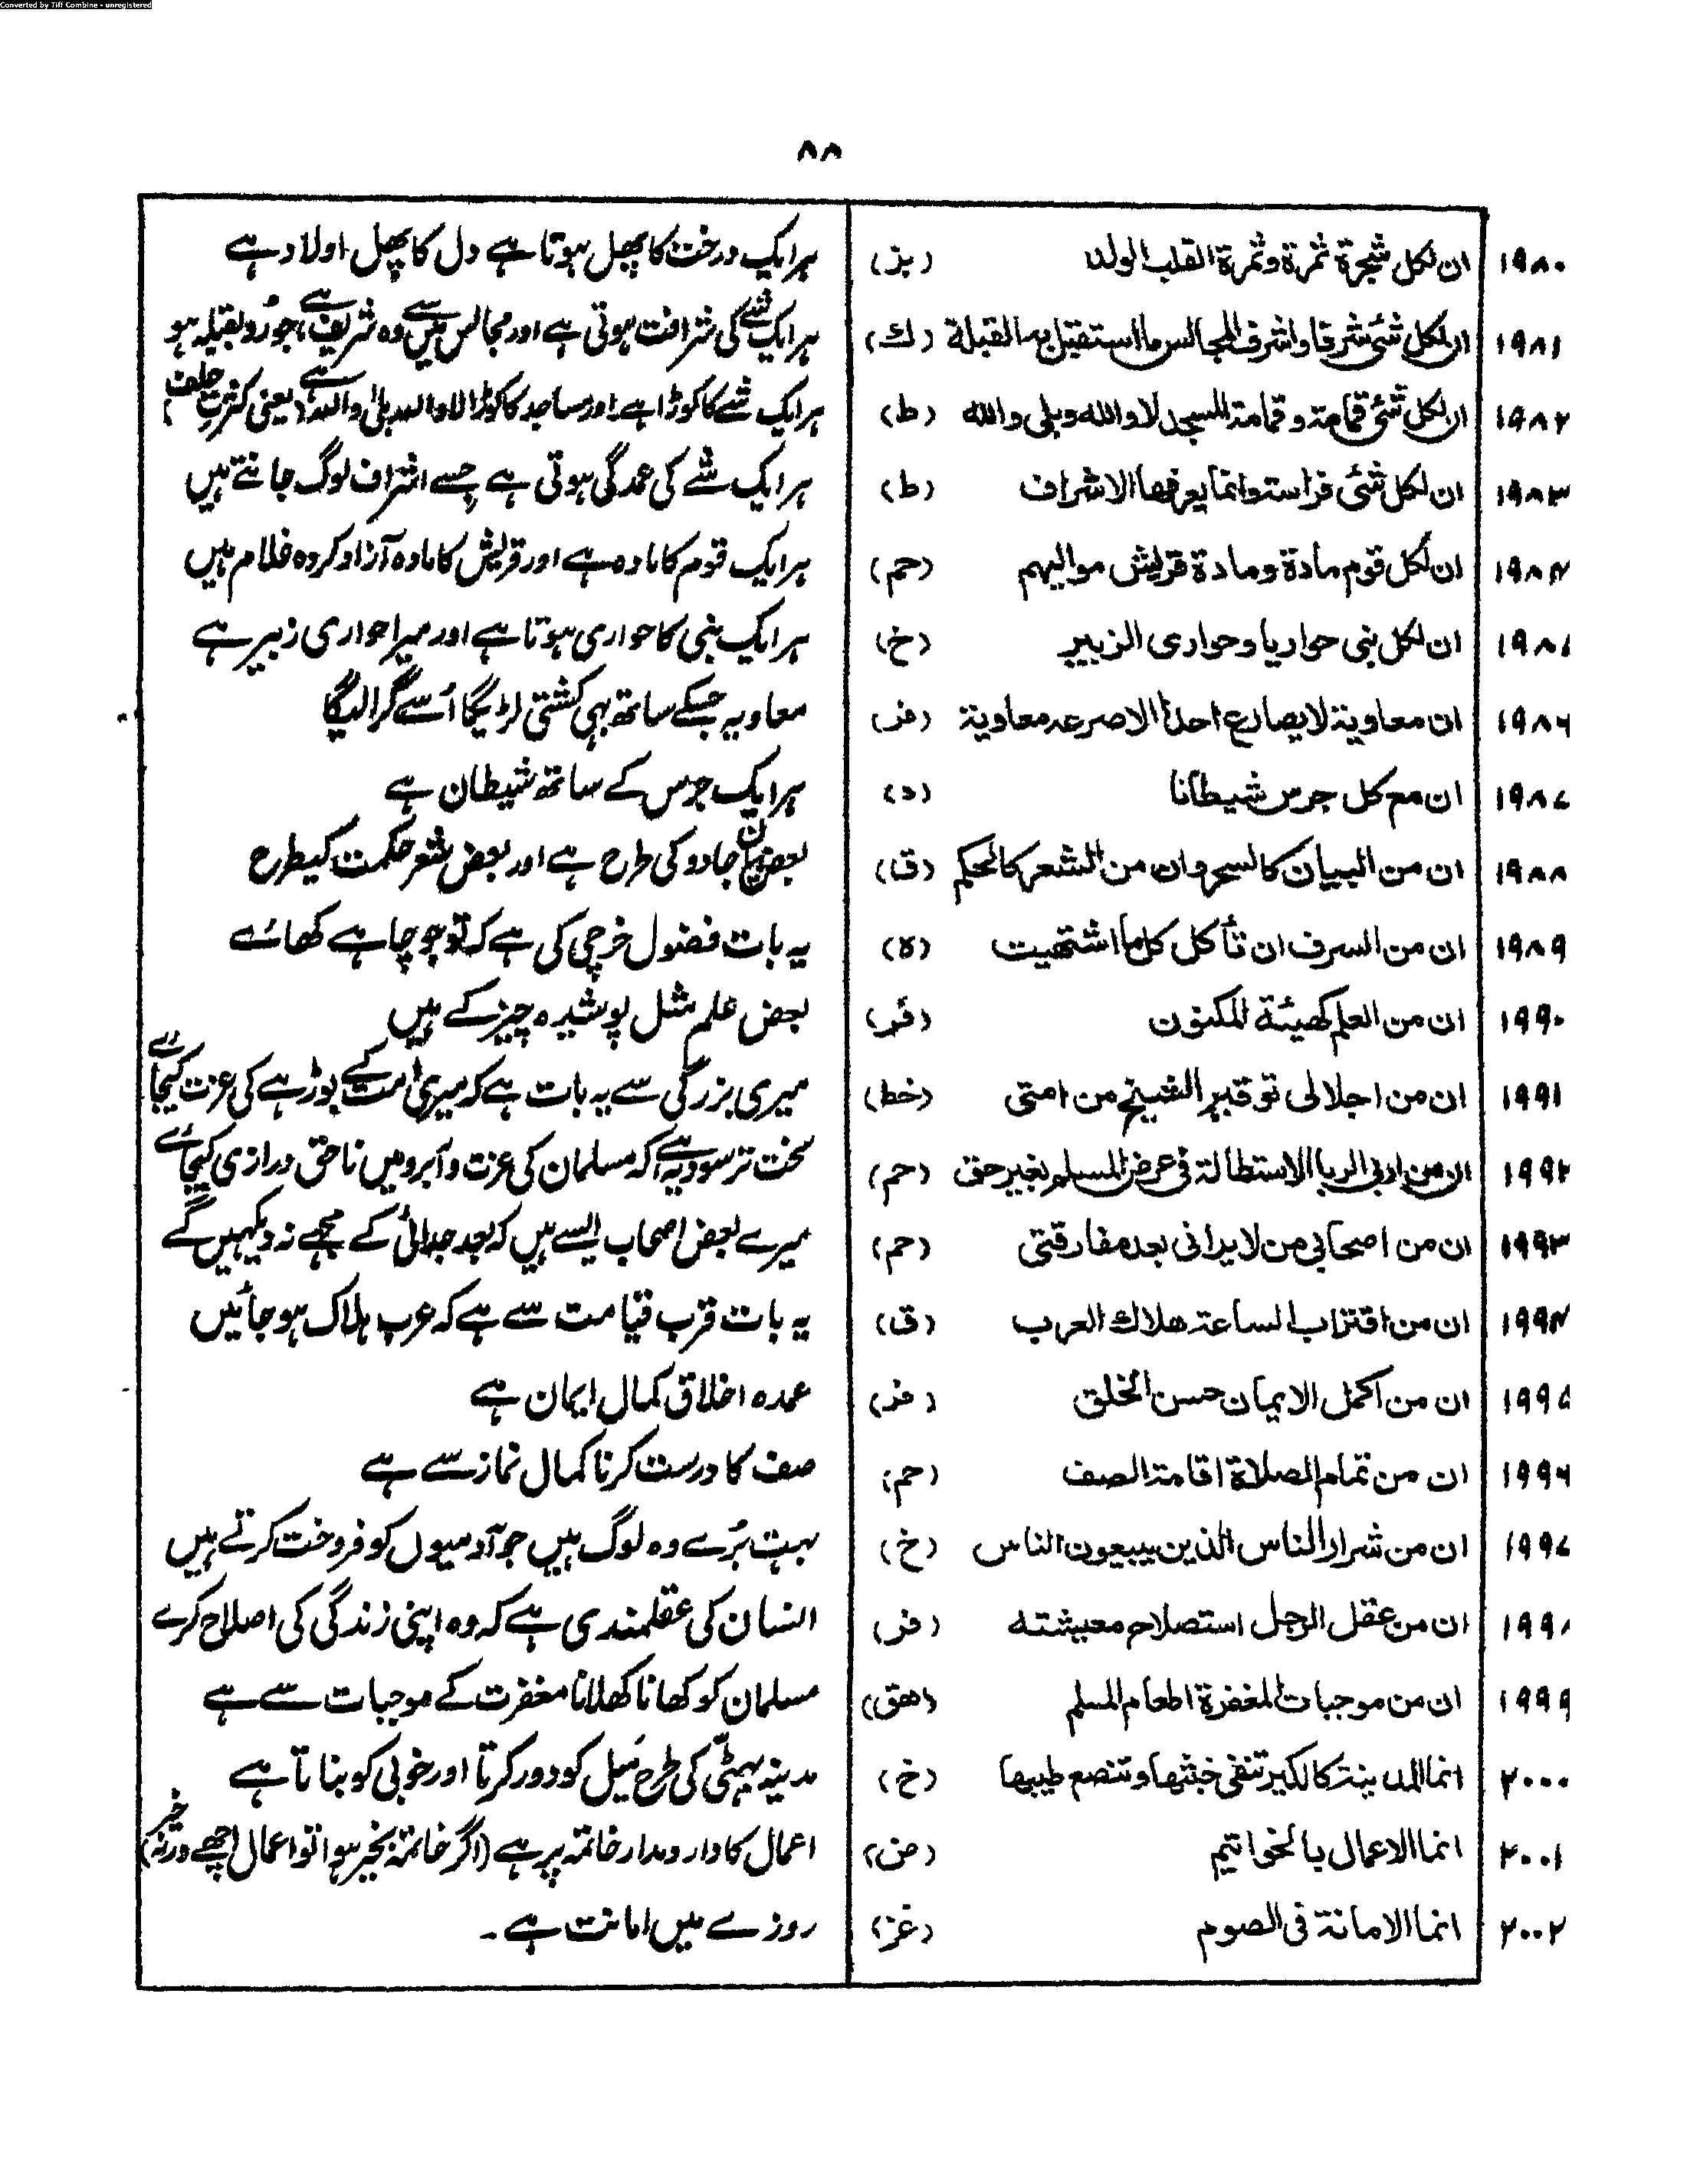 Converted by Tiff Combine - unregistered
۸۸
۱۹۸۰ ان لکل شجرة ثمرة وثمرة القلب الولد (بز) ہر ایک درخت کا پھل ہوتا ہے دل کا پھل اولاد ہے
۱۹۸۱ ان لکل شئی شرفا واشرف المجالس ما استقبل بہ القبلة (ك) ہر ایک شے کی شرافت ہوتی ہے اور مجالس میں سے وہ شریف ہے، جو رو بقبلہ ہو
۱۹۸۲ ان لکل شئی قمامة وقمامة المسجد لا والله وبلی والله (ط) ہر ایک شے کا کوڑا ہے اور مساجد کا کوڑا لا واللہ بلیٰ واللہ ہے (یعنی کثرتِ حلف)
۱۹۸۳ ان لکل شئی فراسة وانما یعرفها الاشراف (ط) ہر ایک شے کی عمدگی ہوتی ہے جسے اشراف لوگ جانتے ہیں
۱۹۸۴ ان لکل قوم مادة ومادة قریش موالیهم (حم) ہر ایک قوم کا مادہ ہے اور قریش کا مادہ آزاد کردہ غلام ہیں
۱۹۸۵ ان لکل نبی حواریا وحواری الزبیر (خ) ہر ایک نبی کا حواری ہوتا ہے اور میرا حواری زبیر ہے
۱۹۸۶ ان معاویة لا یصارع احدا الا صرعہ معاویة (فر) معاویہ جسکے ساتھ بہی کشتی لڑیگا اُسے گرا لیگا
۱۹۸۷ ان مع کل جرس شیطانا (د) ہر ایک جرس کے ساتھ شیطان ہے
۱۹۸۸ ان من البیان کالسحر وان من الشعر کالحکم (ق) بعض بیان جادو کی طرح ہے اور بعض شعر حکمت کیطرح
۱۹۸۹ ان من السرف ان تأکل کلما اشتهیت (ہ) یہ بات فضول خرچی کی ہے کہ تو جو چاہے کھائے
۱۹۹۰ ان من العلم کهیئة المکنون (فر) بعض علم مثل پوشیدہ چیز کے ہیں
۱۹۹۱ ان من اجلالی توقیر الشیخ من امتی (خط) میری بزرگی سے یہ بات ہے کہ میری امت کے بوڑہے کی عزت کیجائے
۱۹۹۲ ان من اربی الربا الاستطالة فی عرض المسلم بغیر حق (حم) سخت تر سود یہ ہے کہ مسلمان کی عزت و آبرو میں ناحق درازی کیجائے
۱۹۹۳ ان من اصحابی من لا یرانی بعد مفارقتی (حم) میرے بعض اصحاب ایسے ہیں کہ بعد جدائی کے مجھے نہ دیکہیں گے
۱۹۹۴ ان من اقتراب الساعة هلاك العرب (ق) یہ بات قرب قیامت سے ہے کہ عرب ہلاک ہو جائیں
۱۹۹۵ ان من اکمل الایمان حسن الخلق (فر) عمدہ اخلاق کمال ایمان ہے
۱۹۹۶ ان من تمام الصلاة اقامة الصف (حم) صف کا درست کرنا کمال نماز سے ہے
۱۹۹۷ ان من شرار الناس الذین یبیعون الناس (خ) بہت بُرے وہ لوگ ہیں جو آدمیوں کو فروخت کرتے ہیں
۱۹۹۸ ان من عقل الرجل استصلاح معیشته (فر) انسان کی عقلمندی ہے کہ وہ اپنی زندگی کی اصلاح کرے
۱۹۹۹ ان من موجبات المغفرة اطعام المسلم (هق) مسلمان کو کھانا کھلانا مغفرت کے موجبات سے ہے
۲۰۰۰ انما المدینة کالکیر تنفی خبثها وتنصع طیبها (خ) مدینہ بہٹّی کی طرح مَیل کو دور کرتا اور خوبی کو بناتا ہے
۲۰۰۱ انما الاعمال بالخواتیم (ض) اعمال کا دار و مدار خاتمہ پر ہے (اگر خاتمہ بخیر ہوا تو اعمال اچھے ورنہ خیر)
۲۰۰۲ انما الامانة فی الصوم (غز) روزے میں امانت ہے۔